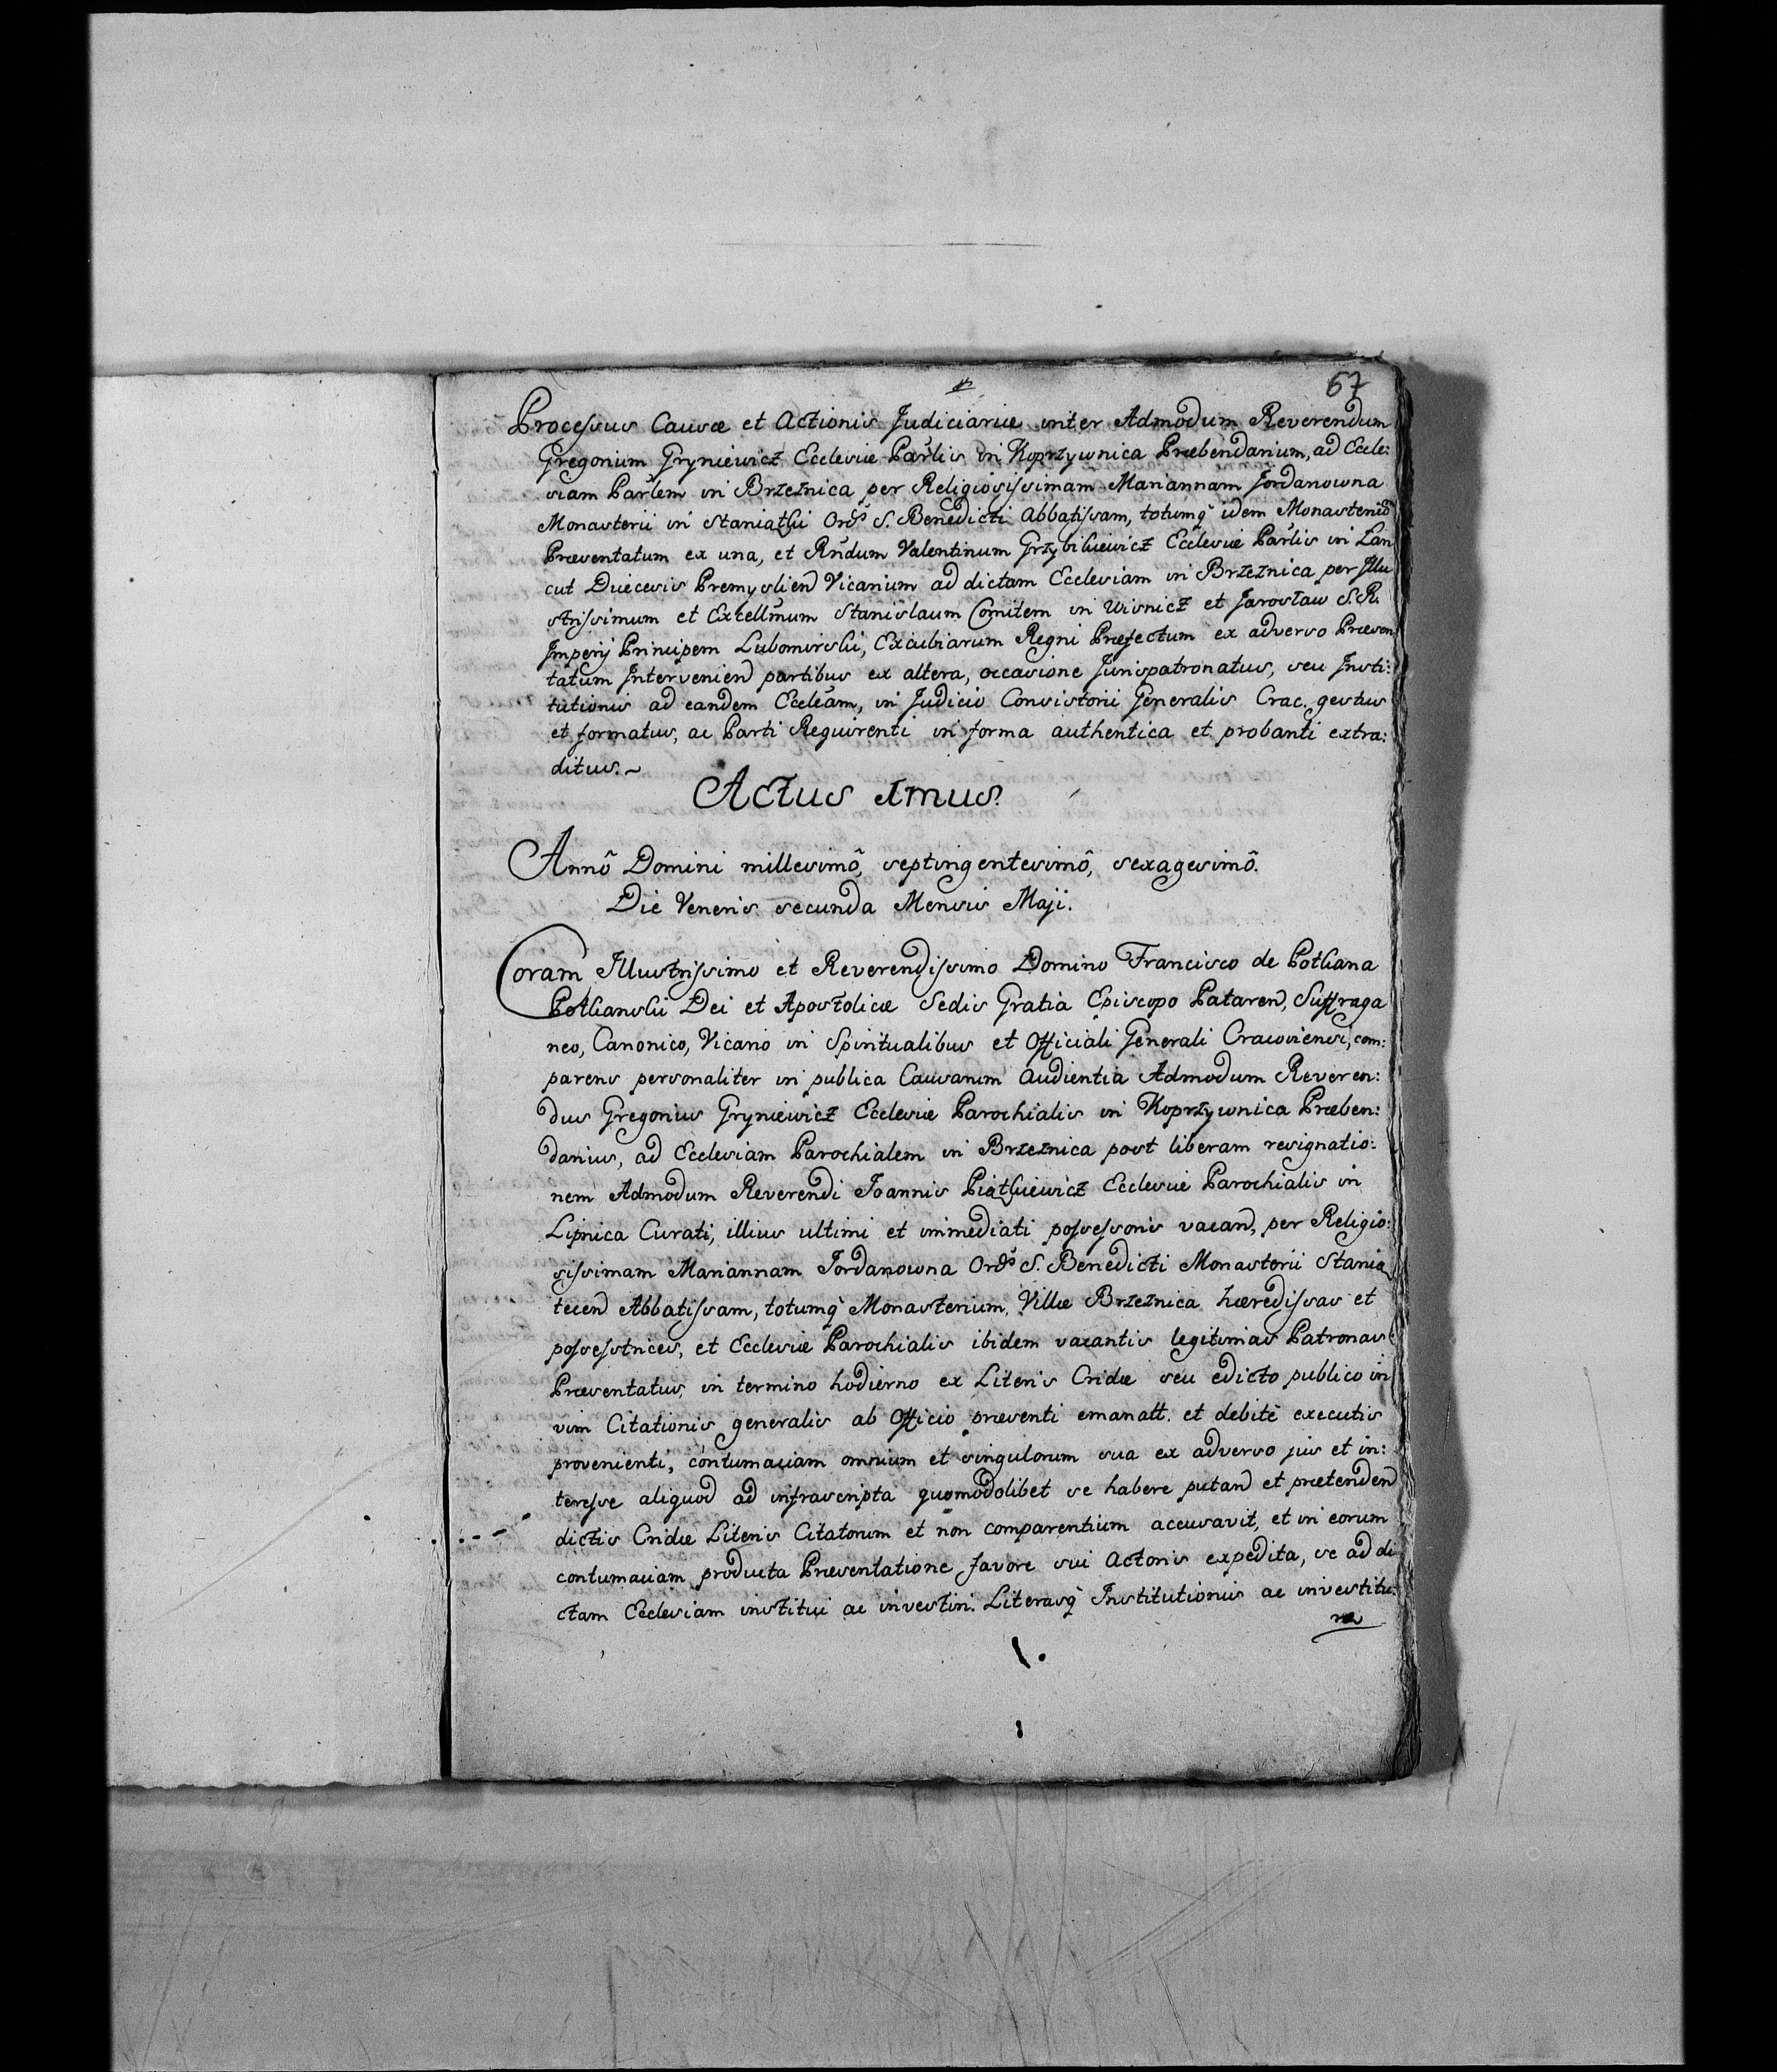 67
Processus Causæ et Actionis Judiciariæ inter Admodum Reverendum
Gregorium Gryniewicz Ecclesiæ Parlis in Koprzywnica Præbendarium, ad Eccle:
siam Parlem in Brzeznica per Religiosissimam Mariannam Jordanowna
Monasterii in Staniątki Ordis S. Benedicti Abbatissam, totumq̀ idem Monasteriũ
Præsentatum ex una, et Rñdum Valentinum Grzybikiewicz Ecclesiæ Parlis in Łan
cut Diæcesis Premyslien Vicarium ad dictam Ecclesiam in Brzeznica per Illu
strissimum et Excellm̃um Stanislaum Comitem in Wisnicz et Jarosław S. R.
Imperij Principem Lubomirski, Excubiarum Regni Præfectum ex adverso Præsen
tatum Intervenien partibus ex altera, occasione Jurispatronatus, seu Insti:
tutionis ad eandem Eccleãm, in Judicio Consistorii Generalis Crac. gestus
et formatus, ac Parti Requirenti in forma authentica et probanti extra:
ditus. ~
Actus Imus.
Annô Domini millesimô, septingentesimô, sexagesimô.
Die Veneris secunda Mensis Maji.
Coram Illustrissimo et Reverendissimo Domino Francisco de Potkana
Potkanski Dei et Apostolicæ Sedis Gratia Episcopo Pataren, Suffraga
neo, Canonico, Vicario in Spiritualibus et Officiali Generali Cracoviensi, com:
parens personaliter in publica Causarum Audientia Admodum Reveren:
dus Gregorius Gryniewicz Ecclesiæ Parochialis in Koprzywnica Præben:
darius, ad Ecclesiam Parochialem in Brzeznica post liberam resignatio:
nem Admodum Reverendi Joannis Piątkiewicz Ecclesiæ Parochialis in
Lipnica Curati, illius ultimi et immediati possessoris vacan, per Religio:
sissimam Mariannam Jordanowna Ordis S. Benedicti Monasterii Stanią
tecen Abbatissam, totumq̀ Monasterium, Villæ Brzeznica hæredissas et
possestrices, et Ecclesiæ Parochialis ibidem vacantis legitimas Patronas
Præsentatus, in termino hodierno ex Literis Cridæ seu edicto publico in
vim Citationis generalis ab Officio præsenti emanatt. et debitè executis
provenienti, contumaciam omnium et singulorum sua ex adverso jus et in:
teresse aliquod ad infrascripta quomodolibet se habere putan et prætenden
dictis Cridæ Literis Citatorum et non comparentium accusavit, et in eorum
contumaciam producta Præsentatione favore sui Actoris expedita, se ad di
ctam Ecclesiam institui ac investiri. Literasq̀ Institutionis ac investitu:
ræ